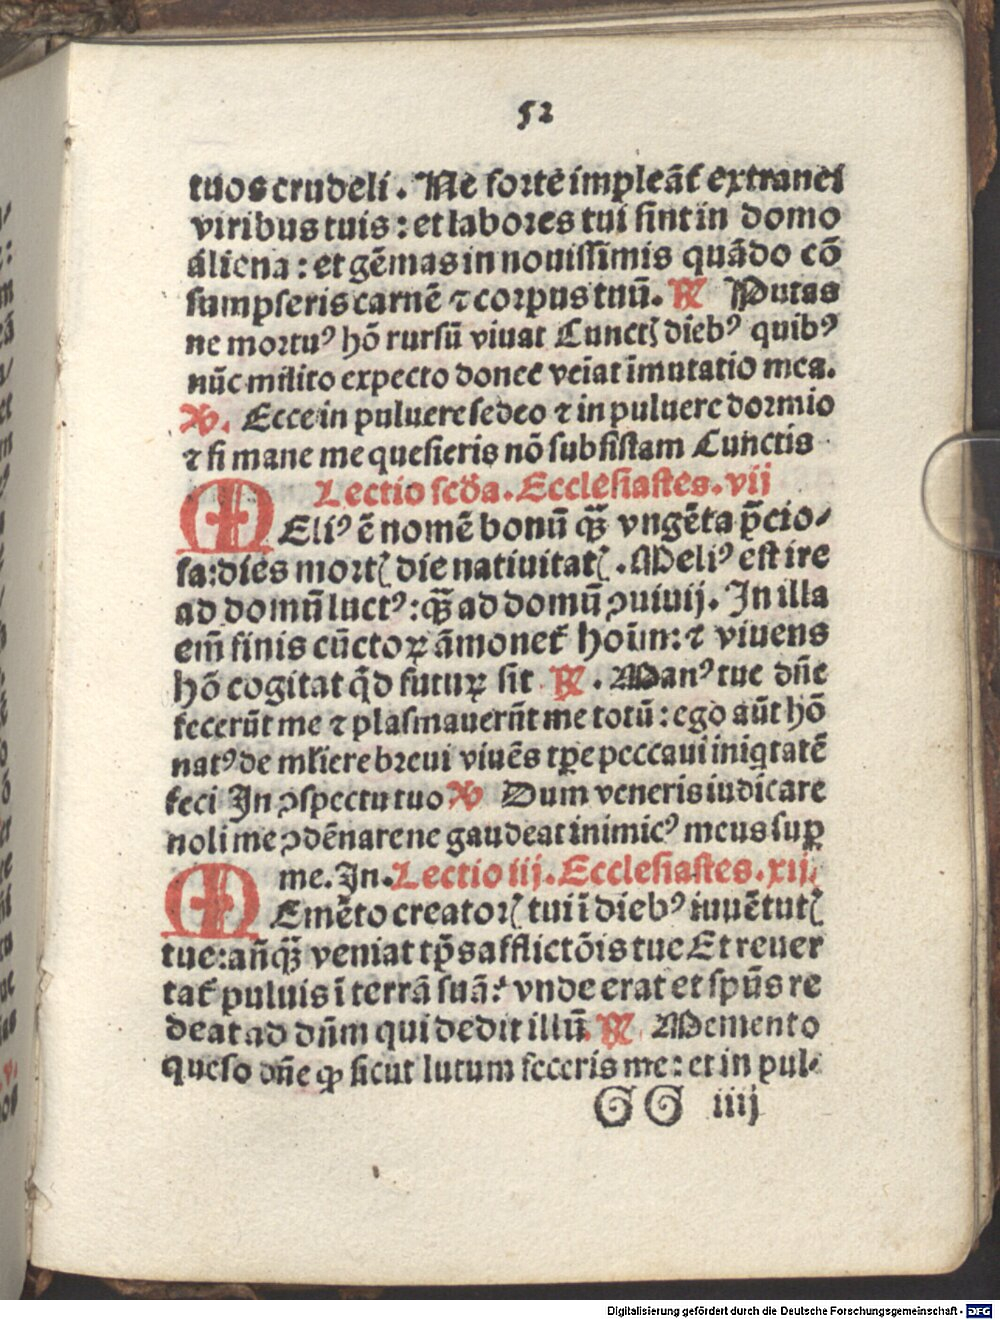 52
tuos crudeli. Ne forte impleāt̄ extranei
viribus tuis: et labores tui sint in domo
aliena: et gēmas in nouissimis quādo cō
sumpseris carnē ⁊ corpus tuū. ℟ Putas
ne mortuꝰ hō rursū viuat Cunctꝭ diebꝰ quibꝰ
nūc milito expecto donec veīat īmutatio mea.
℣. Ecce in puluere sedeo ⁊ in puluere dormio
⁊ si mane me quesieris nō subsistam Cunctis
Lectio scd̄a. Ecclesiastes. vij
MEliꝰ ē nomē bonū qȝ̄ vngēta p̄cio-
sa: dies mortꝭ die natiuitatꝭ. Meliꝰ est ire
ad domū luctꝰ: qȝ̄ ad domū ꝯuiuij. In illa
em̄ finis cūctoꝝ āmonet̄ hoīm: ⁊ viuens
hō cogitat qd̄ futuꝝ sit ℟. Manꝰ tue dn̄e
fecerūt me ⁊ plasmauerūt me totū: ego aūt hō
natꝰ de ml̄iere breui viuēs tꝑe peccaui iniqtatē
feci In ꝯspectu tuo ℣ Dum veneris iudicare
noli me ꝯdēnare ne gaudeat inimicꝰ meus suꝑ
me. In. Lectio iij. Ecclesiastes. xij.
MEmēto creatorꝭ tui ī diebꝰ iuuētutꝭ
tue: an̄qȝ̄ veniat tp̄s afflictōis tue Et reuer
tat̄ puluis ī terrā suā: vnde erat et sp̄us re
deat ad dūm qui dedit illū. ℟ Memento
queso dn̄e ꝙ sicut lutum feceris me: et in pul-
GG iiij
Digitalisierung gefördert durch die Deutsche Forschungsgemeinschaft - DFG